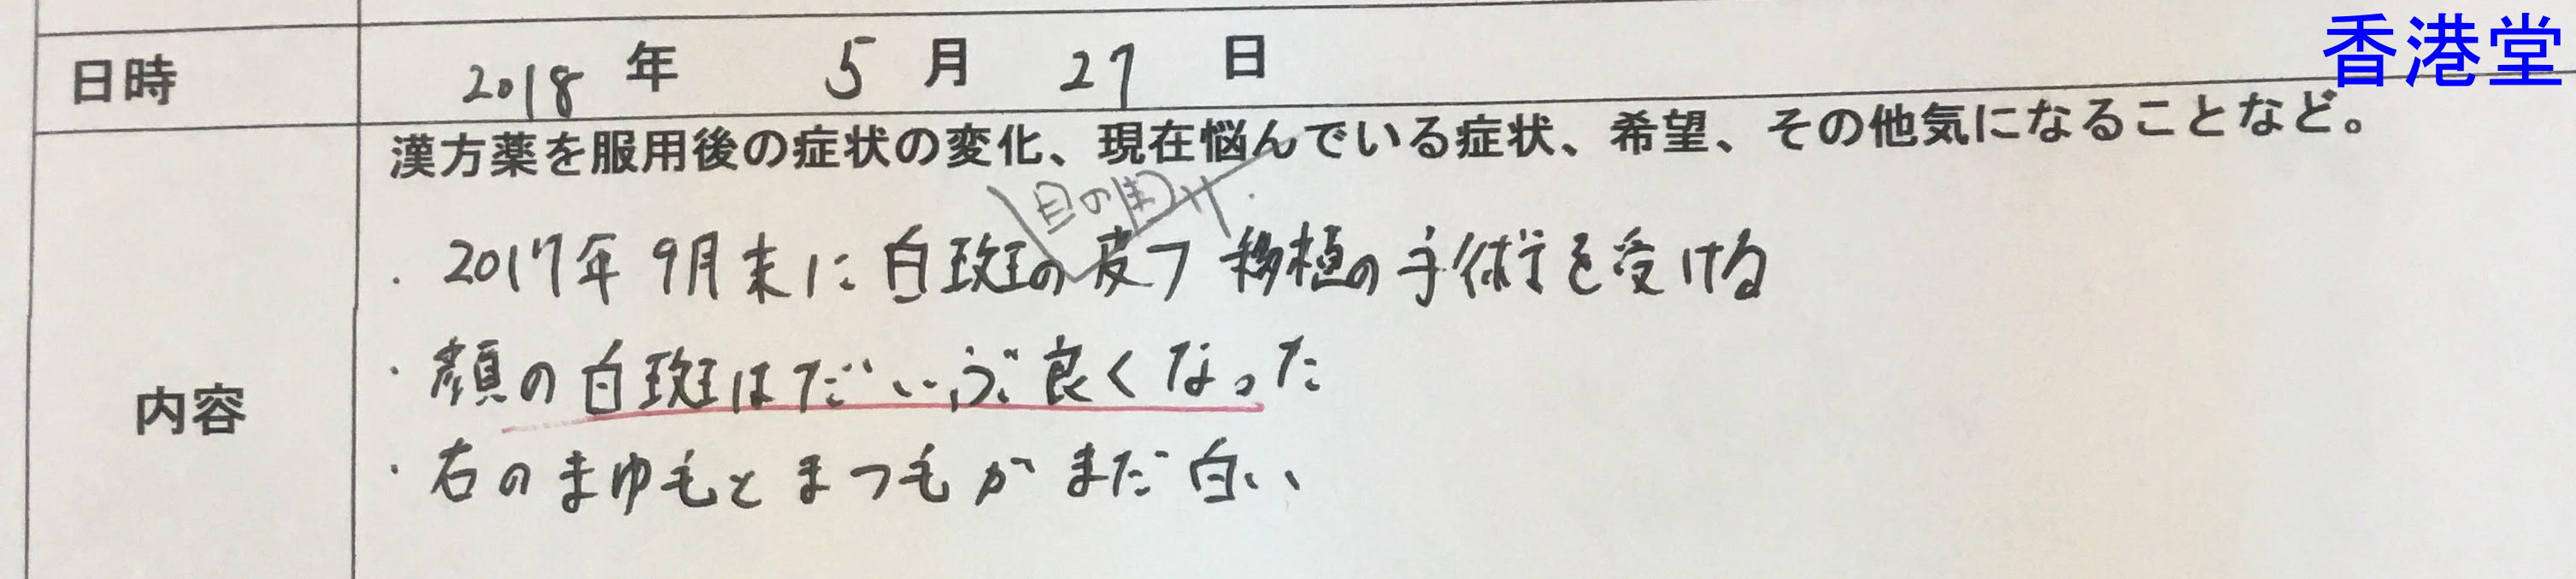 香港堂
日時 2018年 5月 27日
漢方薬を服用後の症状の変化、現在悩んでいる症状、希望、その他気になることなど。
目の周り
・2017年9月末に白斑の皮フ移植の手術を受ける
内容
・顔の白斑はだいぶ良くなった
・右のまゆ毛とまつ毛がまだ白い